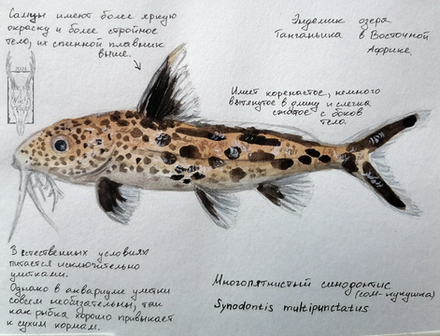 Самцы имеют более яркую
окраску и более стройное
тело, их спинной плавник
выше.
Эндемик озера
Танганьика в Восточной
Африке.
Имеет коренастое, немного
вытянутое в длину и слегка
сжатое с боков
тело.
В естественных условиях
питается исключительно
улитками.
Однако в аквариуме улитки
совсем необязательны, так
как рыбка хорошо привыкает
к сухим кормам.
Многопятнистый синодонтис
(сом-кукушка)
Synodontis multipunctatus